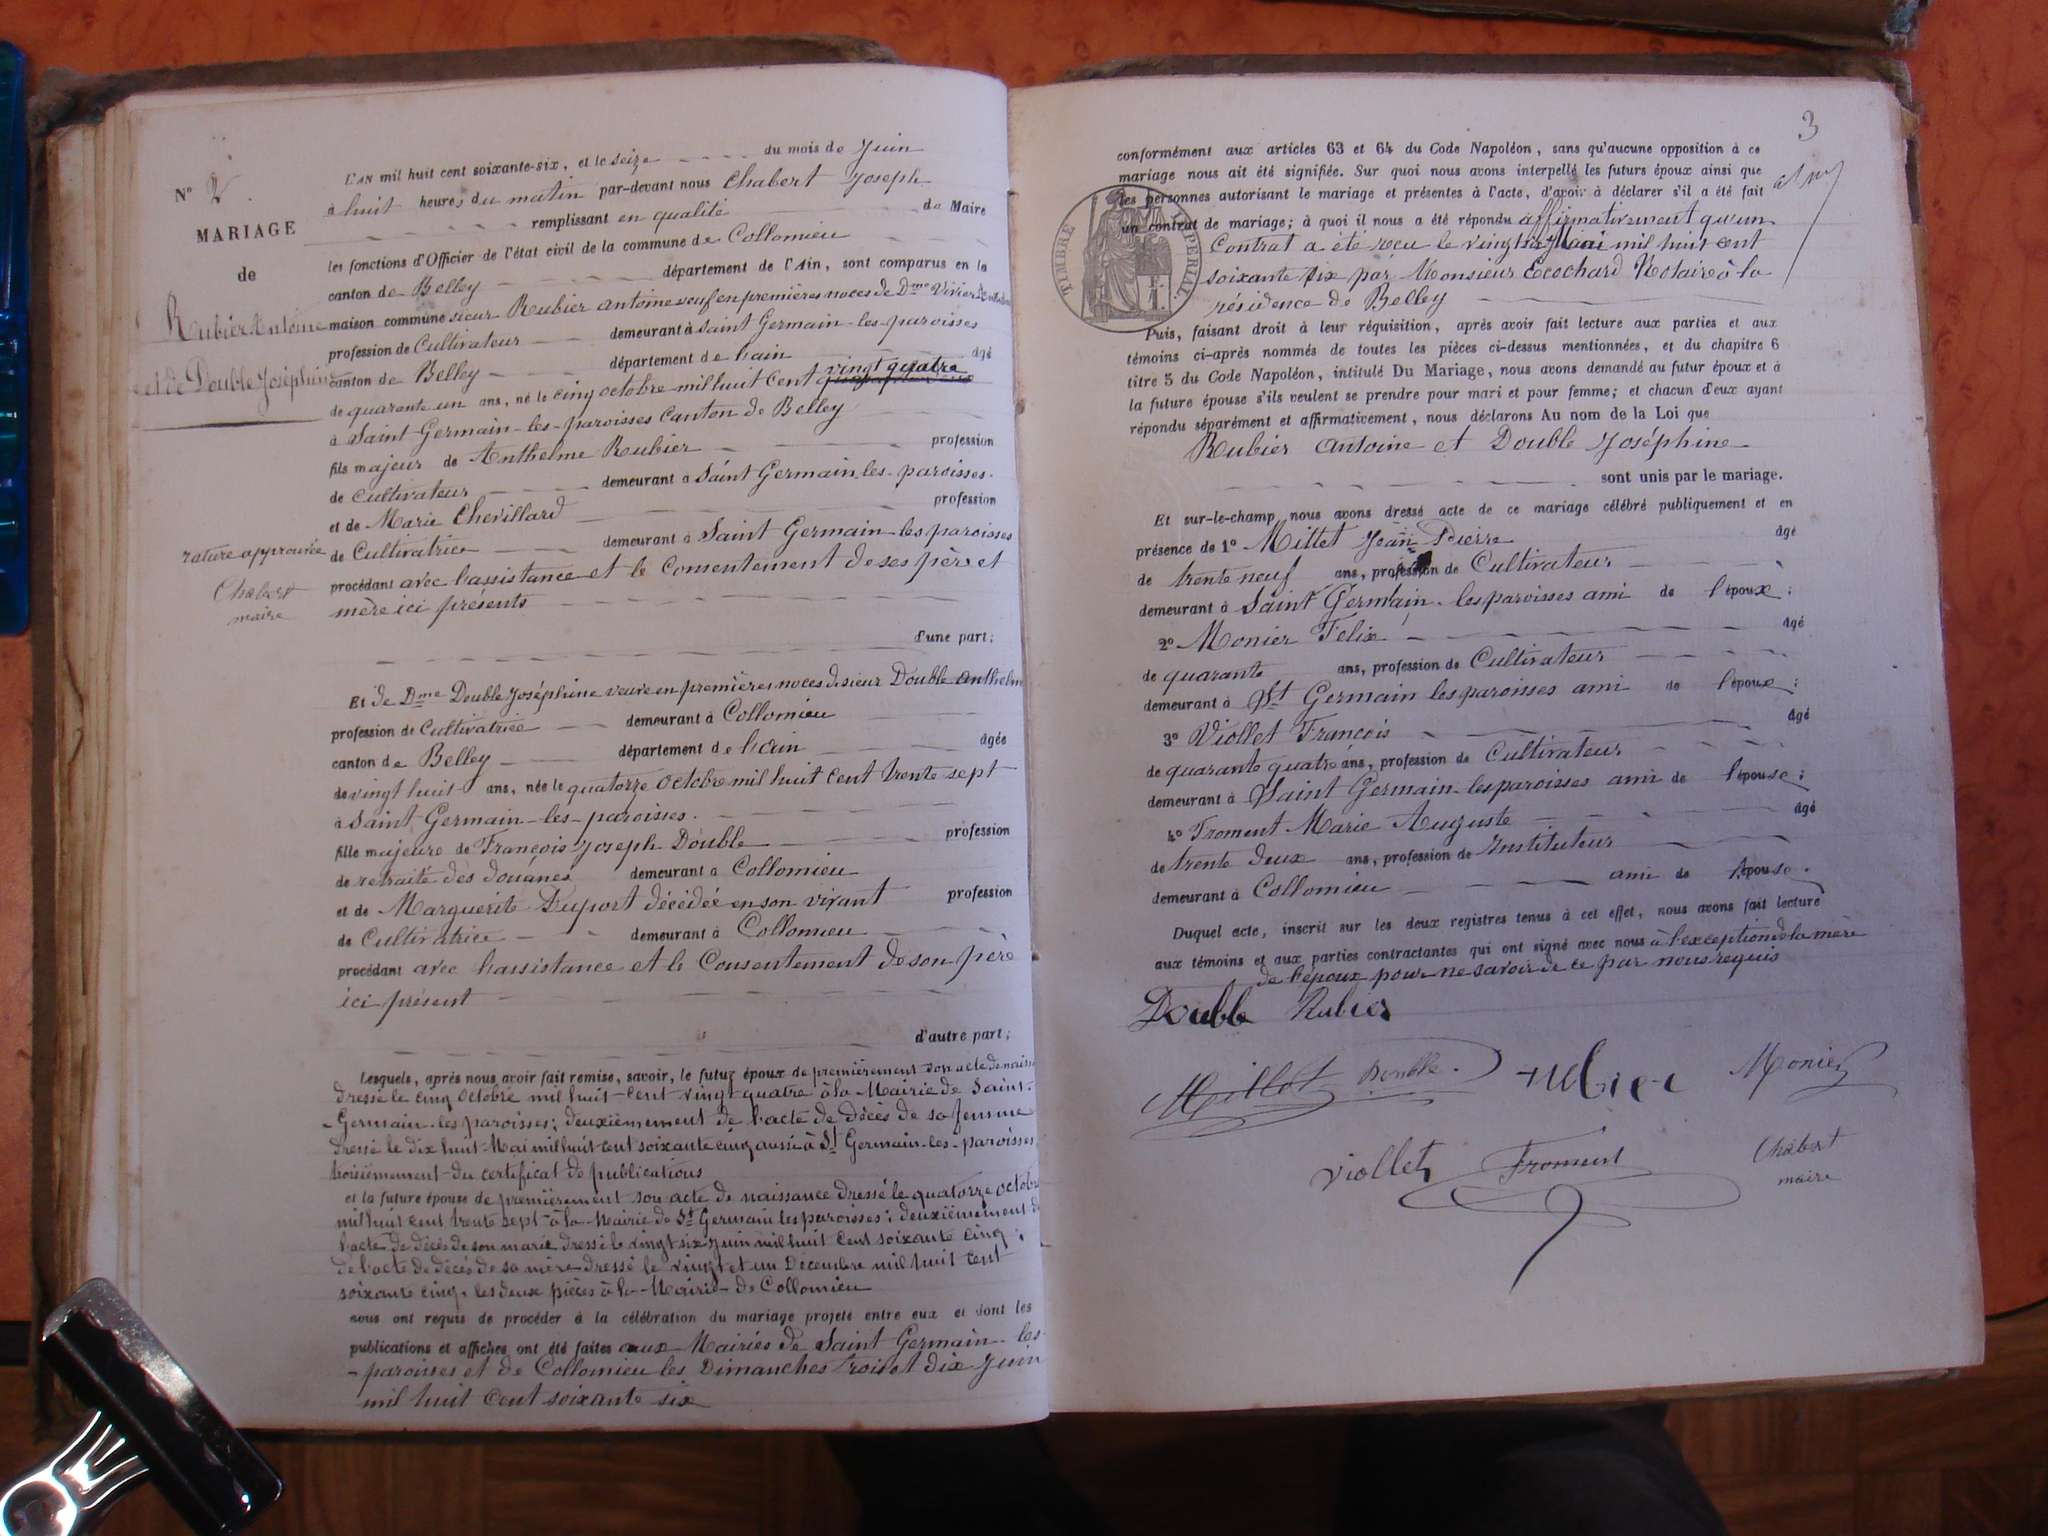 N° 2.
MARIAGE
de
Rubier Antoine
et de Double Joséphine
rature approuvée
Chabert
maire
L'AN mil huit cent soixante-six, et le seize du mois de Juin
à huit heures du matin par-devant nous Chabert Joseph
remplissant en qualité de Maire
les fonctions d'Officier de l'état civil de la commune de Collomieu
canton de Belley département de l'Ain, sont comparus en la
maison commune sieur Rubier Antoine veuf en premières noces de Dme Vivier
profession de Cultivateur demeurant à Saint Germain-les-paroisses
canton de Belley département de l'ain âgé
de quarante un ans, né le cinq octobre mil huit cent vingt quatre
à Saint-Germain-les-paroisses Canton de Belley
fils majeur de Anthelme Rubier profession
de Cultivateur demeurant à Saint Germain-les-paroisses.
et de Marie Chevillard profession
de Cultivatrice demeurant à Saint Germain-les paroisses
procédant avec l'assistance et le Consentement de ses père et
mère ici présents
d'une part;
Et de Dme Double Joséphine veuve en premières noces de sieur Double Anthelme
profession de Cultivatrice demeurant à Collomieu
canton de Belley département de l'ain âgée
de vingt huit ans, née le quatorze octobre mil huit cent trente sept
à Saint Germain-les-paroisses.
fille majeure de François Joseph Double profession
de retraité des douanes demeurant à Collomieu
et de Marguerite Duport décédée en son vivant profession
de Cultivatrice demeurant à Collomieu
procédant avec l'assistance et le Consentement de son père
ici présent
d'autre part;
Lesquels, après nous avoir fait remise, savoir, le futur époux de premièrement son acte de naiss
dressé le cinq octobre mil huit-cent vingt quatre à la Mairie de Saint-
-Germain-les paroisses; deuxièmement de l'acte de décès de sa femme
dressé le dix huit Mai mil huit cent soixante cinq aussi à St Germain-les-paroisses
troisièmement du certificat de publications
et la future épouse de premièrement son acte de naissance dressé le quatorze octobre
mil huit cent trente sept à la Mairie de St Germain les paroisses; deuxièmement de
l'acte de décès de son marie dressé le vingt six Juin mil huit cent soixante cinq;
de l'acte de décès de sa mère dressé le vingt et un Décembre mil huit cent
soixante cinq, les deux pièces à la Mairie de Collomieu
nous ont requis de procéder à la célébration du mariage projeté entre eux et dont les
publications et affiches ont été faites aux Mairies de Saint Germain-les
-paroisses et de Collomieu les Dimanches trois et dix Juin
mil huit cent soixante six
3
conformément aux articles 63 et 64 du Code Napoléon, sans qu'aucune opposition à ce
mariage nous ait été signifiée. Sur quoi nous avons interpellé les futurs époux ainsi que
les personnes autorisant le mariage et présentes à l'acte, d'avoir à déclarer s'il a été fait
un contrat de mariage; à quoi il nous a été répondu affirmativement qu'un
Contrat a été reçu le vingt Mai mil huit cent
soixante six par Monsieur Ecochard Notaire à la
résidence de Belley
TIMBRE IMPERIAL
Puis, faisant droit à leur réquisition, après avoir fait lecture aux parties et aux
témoins ci-après nommés de toutes les pièces ci-dessus mentionnées, et du chapitre 6
titre 5 du Code Napoléon, intitulé Du Mariage, nous avons demandé au futur époux et à
la future épouse s'ils veulent se prendre pour mari et pour femme; et chacun d'eux ayant
répondu séparément et affirmativement, nous déclarons Au nom de la Loi que
Rubier Antoine et Double Joséphine
sont unis par le mariage.
Et sur-le-champ nous avons dressé acte de ce mariage célébré publiquement et en
présence de 1° Millet Jean Pierre âgé
de trente neuf ans, profession de Cultivateur
demeurant à Saint Germain-les paroisses ami de l'époux;
2° Monier Felix âgé
de quarante ans, profession de Cultivateur
demeurant à St Germain les paroisses ami de l'époux;
3° Viollet François âgé
de quarante quatre ans, profession de Cultivateur
demeurant à Saint Germain-les paroisses ami de l'épouse;
4° Froment Marie Auguste âgé
de trente deux ans, profession de Instituteur
demeurant à Collomieu ami de l'épouse.
Duquel acte, inscrit sur les deux registres tenus à cet effet, nous avons fait lecture
aux témoins et aux parties contractantes qui ont signé avec nous à l'exception de la mère
de l'époux pour ne savoir de ce par nous requis
Double Rubier
Millet Double Rubier Monier
Viollet Froment Chabert
maire